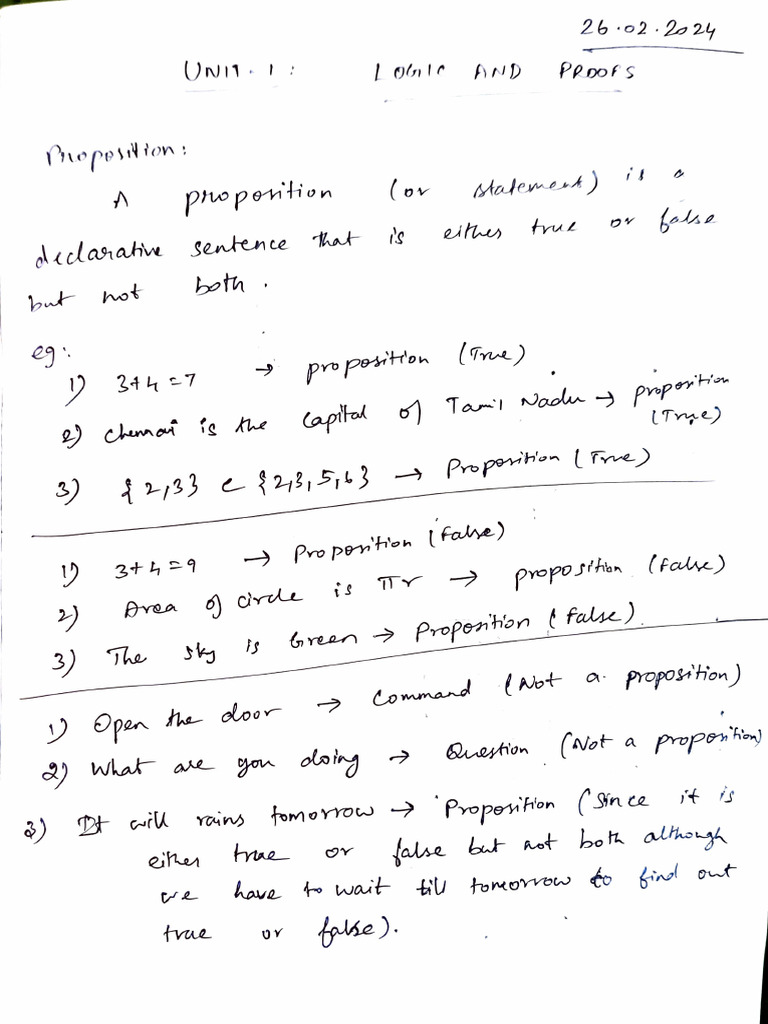 26.02.2024
UNIT. 1 : LOGIC AND PROOFS
Proposition:
A proposition (or statement) is a
declarative sentence that is either true or false
but not both.
eg:
1) 3+4=7 → proposition (True)
2) Chennai is the Capital of Tamil Nadu → proposition
(True)
3) {2,3} c {2,3,5,6} → Proposition (True)
1) 3+4=9 → Proposition (false)
2) Area of circle is πr → proposition (false)
3) The sky is Green → Proposition (false)
1) Open the door → Command (Not a proposition)
2) What are you doing → Question (Not a proposition)
3) It will rains tomorrow → Proposition (Since it is
either true or false but not both although
we have to wait till tomorrow to find out
true or false).